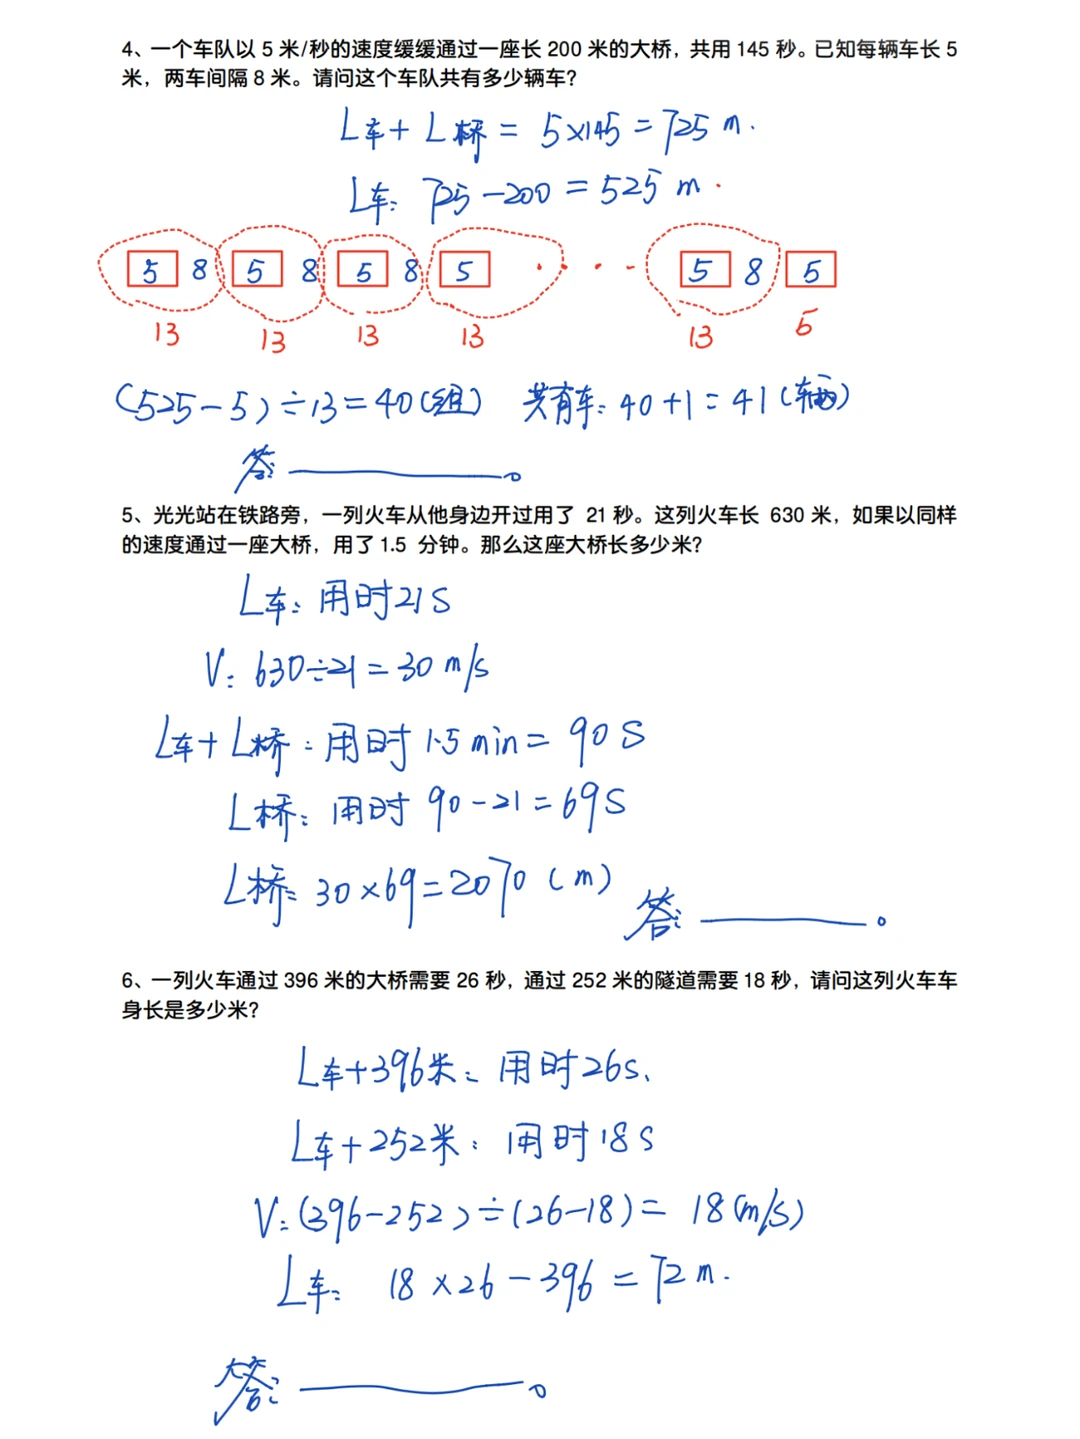 4、一个车队以 5 米/秒的速度缓缓通过一座长 200 米的大桥，共用 145 秒。已知每辆车长 5
米，两车间隔 8 米。请问这个车队共有多少辆车？
L车 + L桥 = 5×145 = 725 m.
L车: 725 - 200 = 525 m.
5 8 5 8 5 8 5 · · · - 5 8 5
13 13 13 13 13 5
(525-5)÷13=40(组) 共有车: 40+1=41(车辆)
答: ————。
5、光光站在铁路旁，一列火车从他身边开过用了 21 秒。这列火车长 630 米，如果以同样
的速度通过一座大桥，用了 1.5 分钟。那么这座大桥长多少米？
L车: 用时21s
V: 630÷21=30 m/s
L车+L桥: 用时 1.5 min = 90 s
L桥: 用时 90-21=69s
L桥: 30×69=2070 (m)
答: ————。
6、一列火车通过 396 米的大桥需要 26 秒，通过 252 米的隧道需要 18 秒，请问这列火车车
身长是多少米？
L车+396米: 用时26s、
L车+252米: 用时18s
V: (396-252)÷(26-18)= 18(m/s)
L车: 18×26-396=72m.
答: ————。